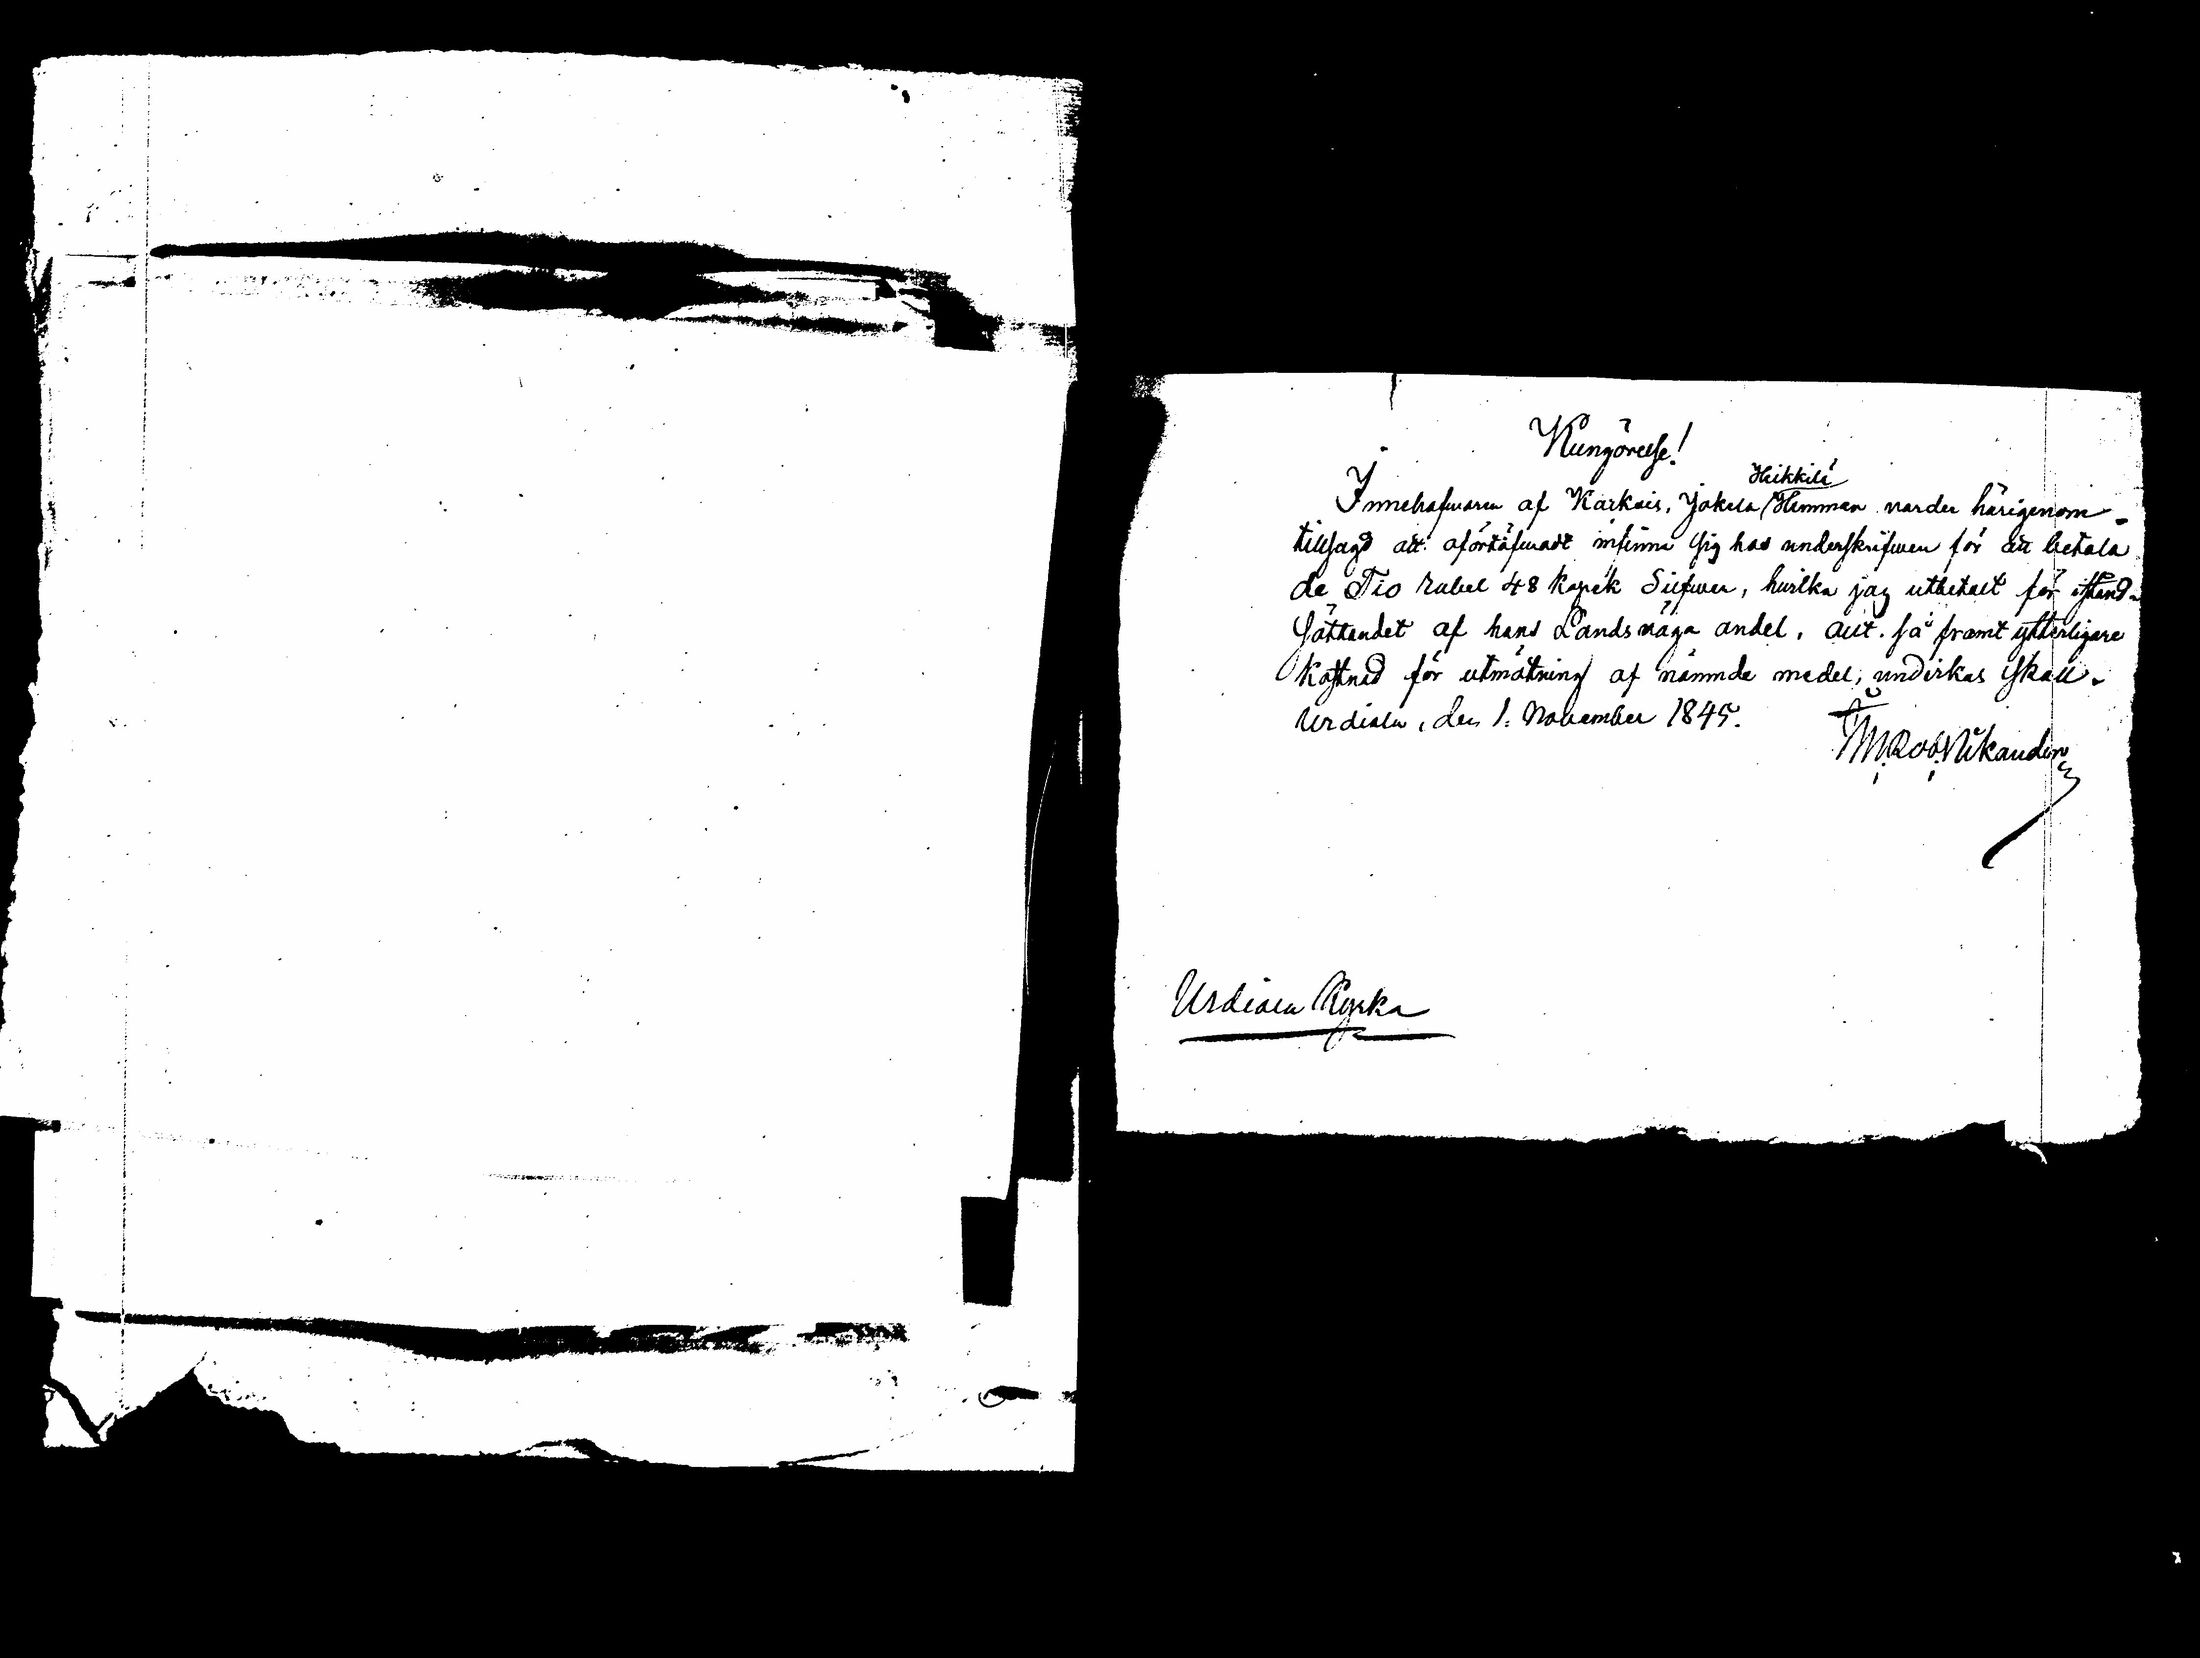 Kungörelse!
Heikkilä
Innehafwaren af Karkais, Jokela Hemman varder härigenom
tillsagd att oförtöfwadt infinna sig hos underskrifwen för att betala
de Tio rubel 48 kopek Silfwer, hvilka jag utbetalt för istånd-
sättandet af hans Landsväga andel, allt. så framt ytterligare
kostnad för utmätning af nämnde medel, undvikas skall.
Urdiala, den 1. November 1845.
Urdiala Kyrka